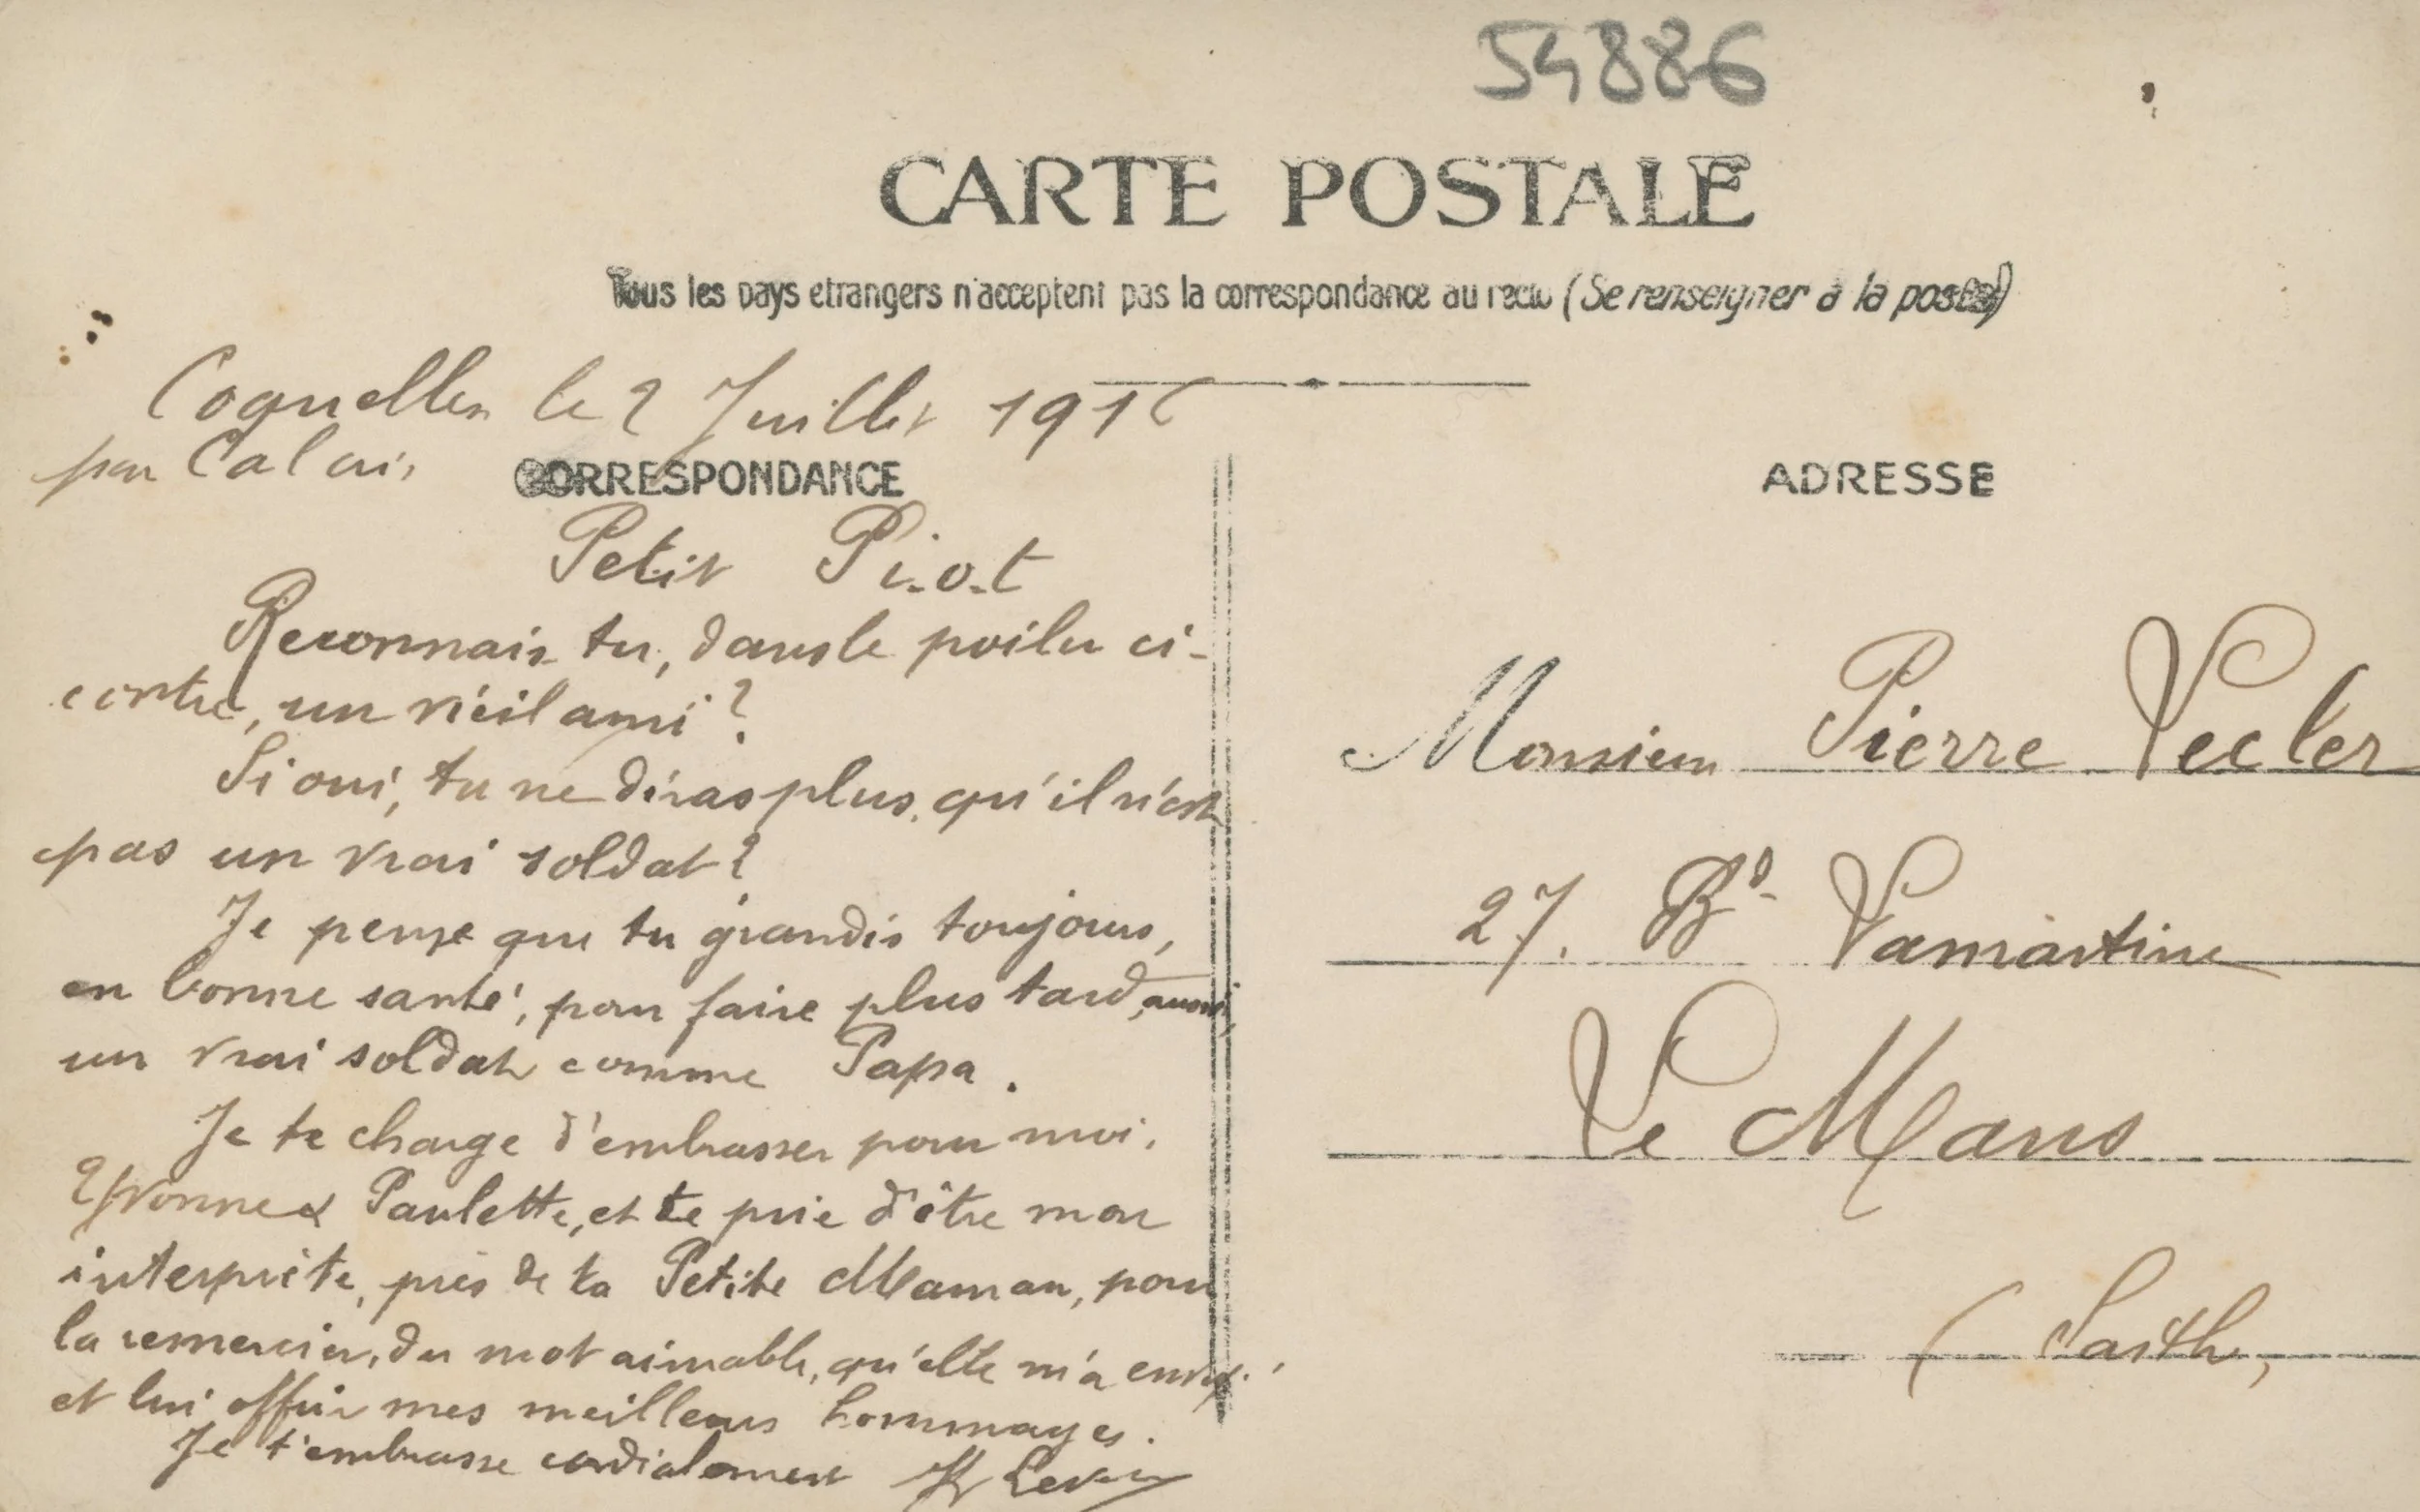 54886
CARTE POSTALE
Tous les pays etrangers n'acceptent pas la correspondance au recto (Se renseigner à la poste)
Coquelles le 2 Juillet 1916
par Calais
CORRESPONDANCE
Petit Pi.o.t
Reconnais tu, dans le poilu ci-
contre, un vieil ami ?
Si oui, tu ne diras plus, qu'il n'est
pas un vrai soldat ?
Je pense que tu grandis toujours,
en bonne santé, pour faire plus tard, aussi,
un vrai soldat comme Papa.
Je te charge d'embrasser pour moi,
Yvonne & Paulette, et te prie d'être mon
interprète, près de ta Petite Maman, pour
la remercier, du mot aimable, qu'elle m'a envoyé
et lui offrir mes meilleurs hommages.
Je t'embrasse cordialement
ADRESSE
Monsieur Pierre Lecler
27. Bd. Lamartine
Le Mans
( Sarthe,